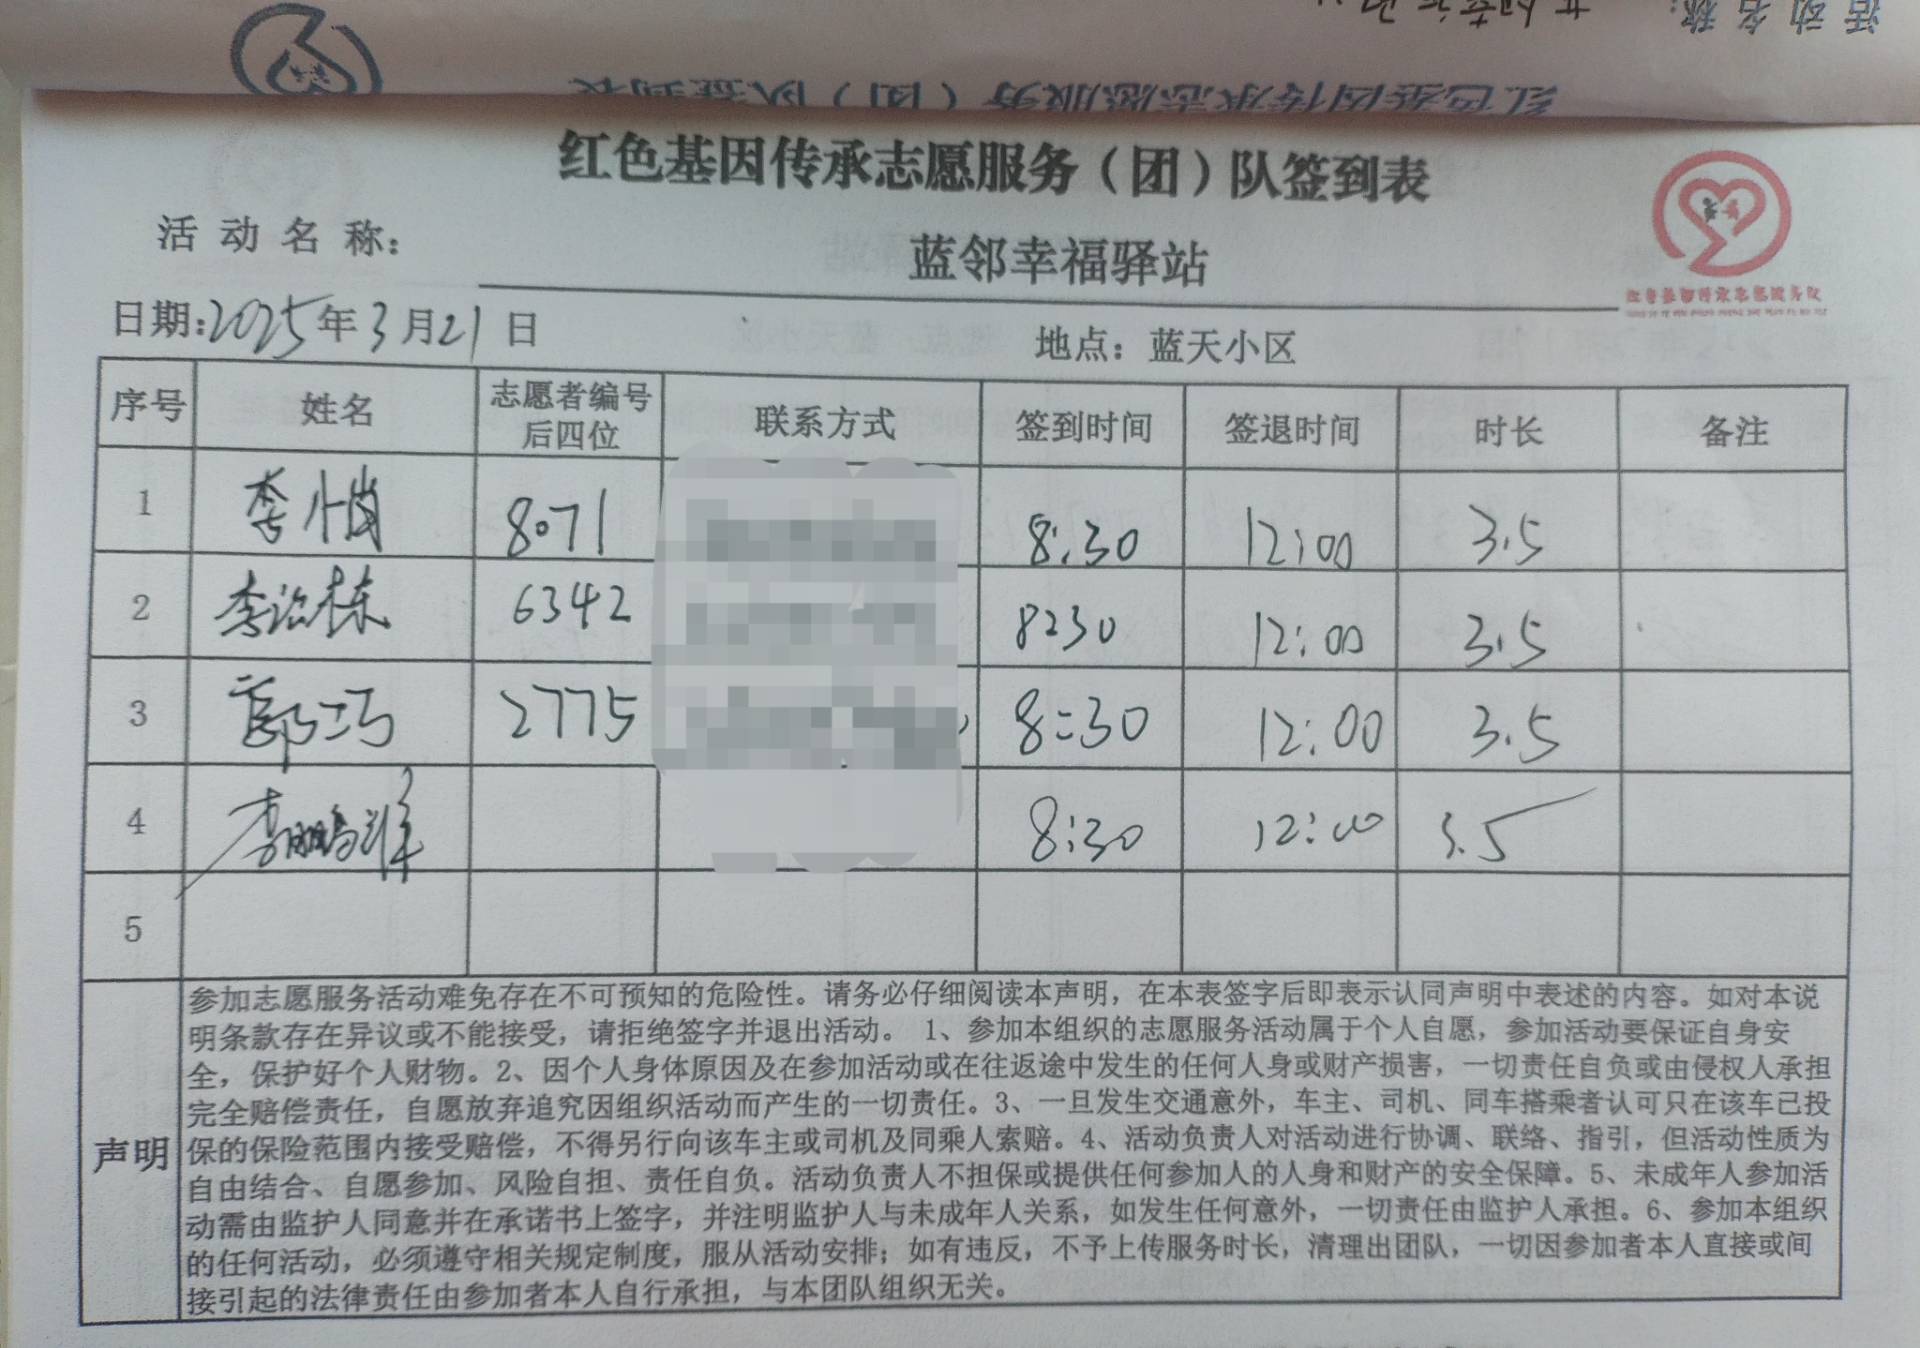 红色基因传承志愿服务（团）队签到表
活动名称： 蓝邻幸福驿站
日期:2025年3月21日 地点：蓝天小区
序号 姓名 志愿者编号后四位 联系方式 签到时间 签退时间 时长 备注
1 李悄 8071 8:30 12:00 3.5
2 李治栋 6342 8230 12:00 3.5
3 郭巧 2775 8:30 12:00 3.5
4 李鹏 8:30 12:00 3.5
5
声明
参加志愿服务活动难免存在不可预知的危险性。请务必仔细阅读本声明，在本表签字后即表示认同声明中表述的内容。如对本说
明条款存在异议或不能接受，请拒绝签字并退出活动。 1、参加本组织的志愿服务活动属于个人自愿，参加活动要保证自身安
全，保护好个人财物。2、因个人身体原因及在参加活动或在往返途中发生的任何人身或财产损害，一切责任自负或由侵权人承担
完全赔偿责任，自愿放弃追究因组织活动而产生的一切责任。3、一旦发生交通意外，车主、司机、同车搭乘者认可只在该车已投
保的保险范围内接受赔偿，不得另行向该车主或司机及同乘人索赔。4、活动负责人对活动进行协调、联络、指引，但活动性质为
自由结合、自愿参加、风险自担、责任自负。活动负责人不担保或提供任何参加人的人身和财产的安全保障。5、未成年人参加活
动需由监护人同意并在承诺书上签字，并注明监护人与未成年人关系，如发生任何意外，一切责任由监护人承担。6、参加本组织
的任何活动，必须遵守相关规定制度，服从活动安排；如有违反，不予上传服务时长，清理出团队，一切因参加者本人直接或间
接引起的法律责任由参加者本人自行承担，与本团队组织无关。